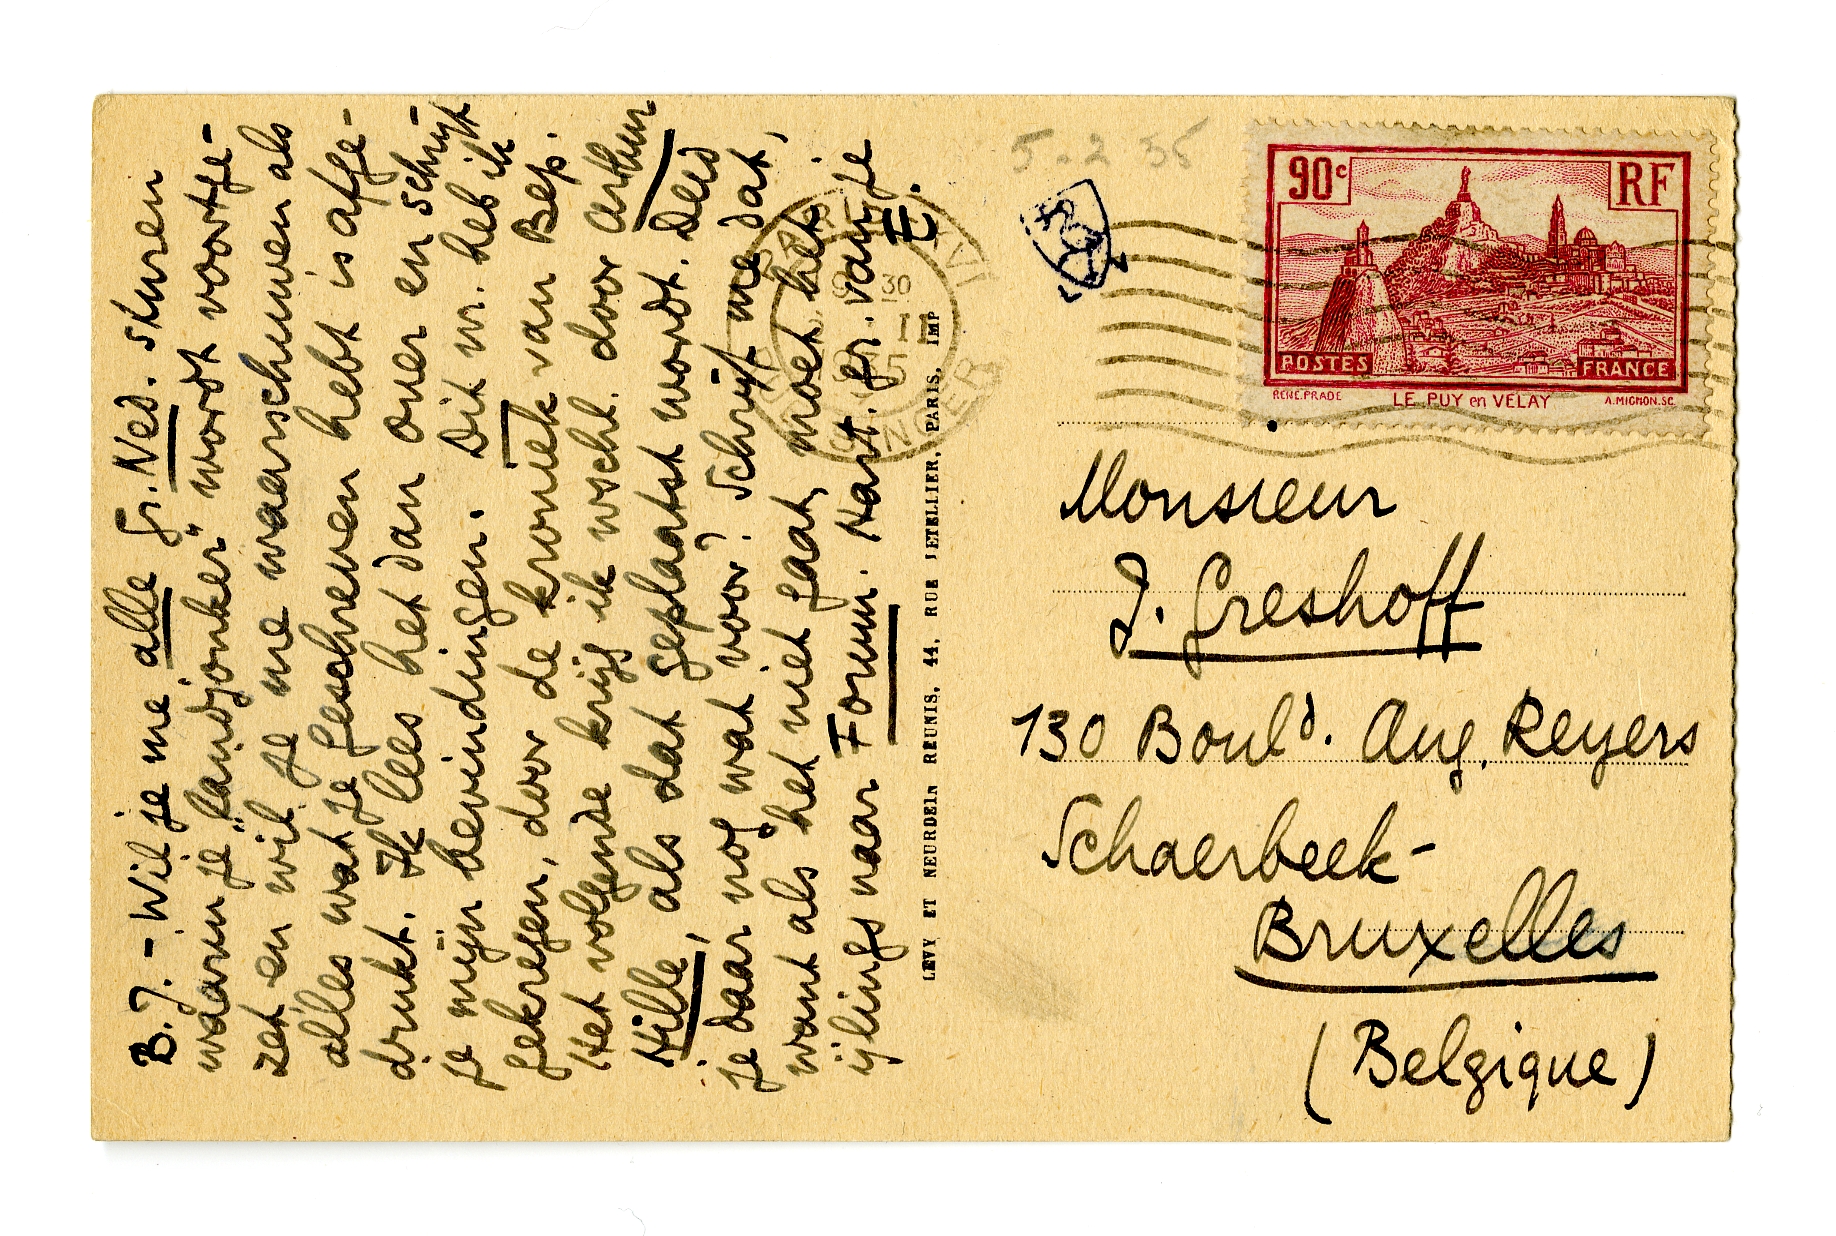 B.J. - Wil je me alle Gr. Ned. sturen
waarin je "Landjonker" wordt voortge-
zet en wil je me waarschuwen als
alles wat je geschreven hebt is afge-
drukt. Ik lees het dan over en schrijf
je mijn bevindingen. Dit nr. heb ik
gekregen, door de kroniek van Bep.
Het volgende krijg ik wscht. door Arthur
Hille, als dat geplaatst wordt. Deed
je daar nog wat voor? Schrijf me dat,
want als het niet gaat, moet het
ijlings naar Forum. Hart. gr. van je
E.
LEVY ET NEURDEIN RÉUNIS, 44, RUE LETELLIER, PARIS, IMP
5-2 35
90c RF
POSTES FRANCE
RENÉ.PRADE LE PUY en VELAY A.MIGNON.SC.
PARIS XVI
30
SINGER
Monsieur
J. Greshoff
130 Bould. Aug. Reyers
Schaerbeek-
Bruxelles
(Belgique)